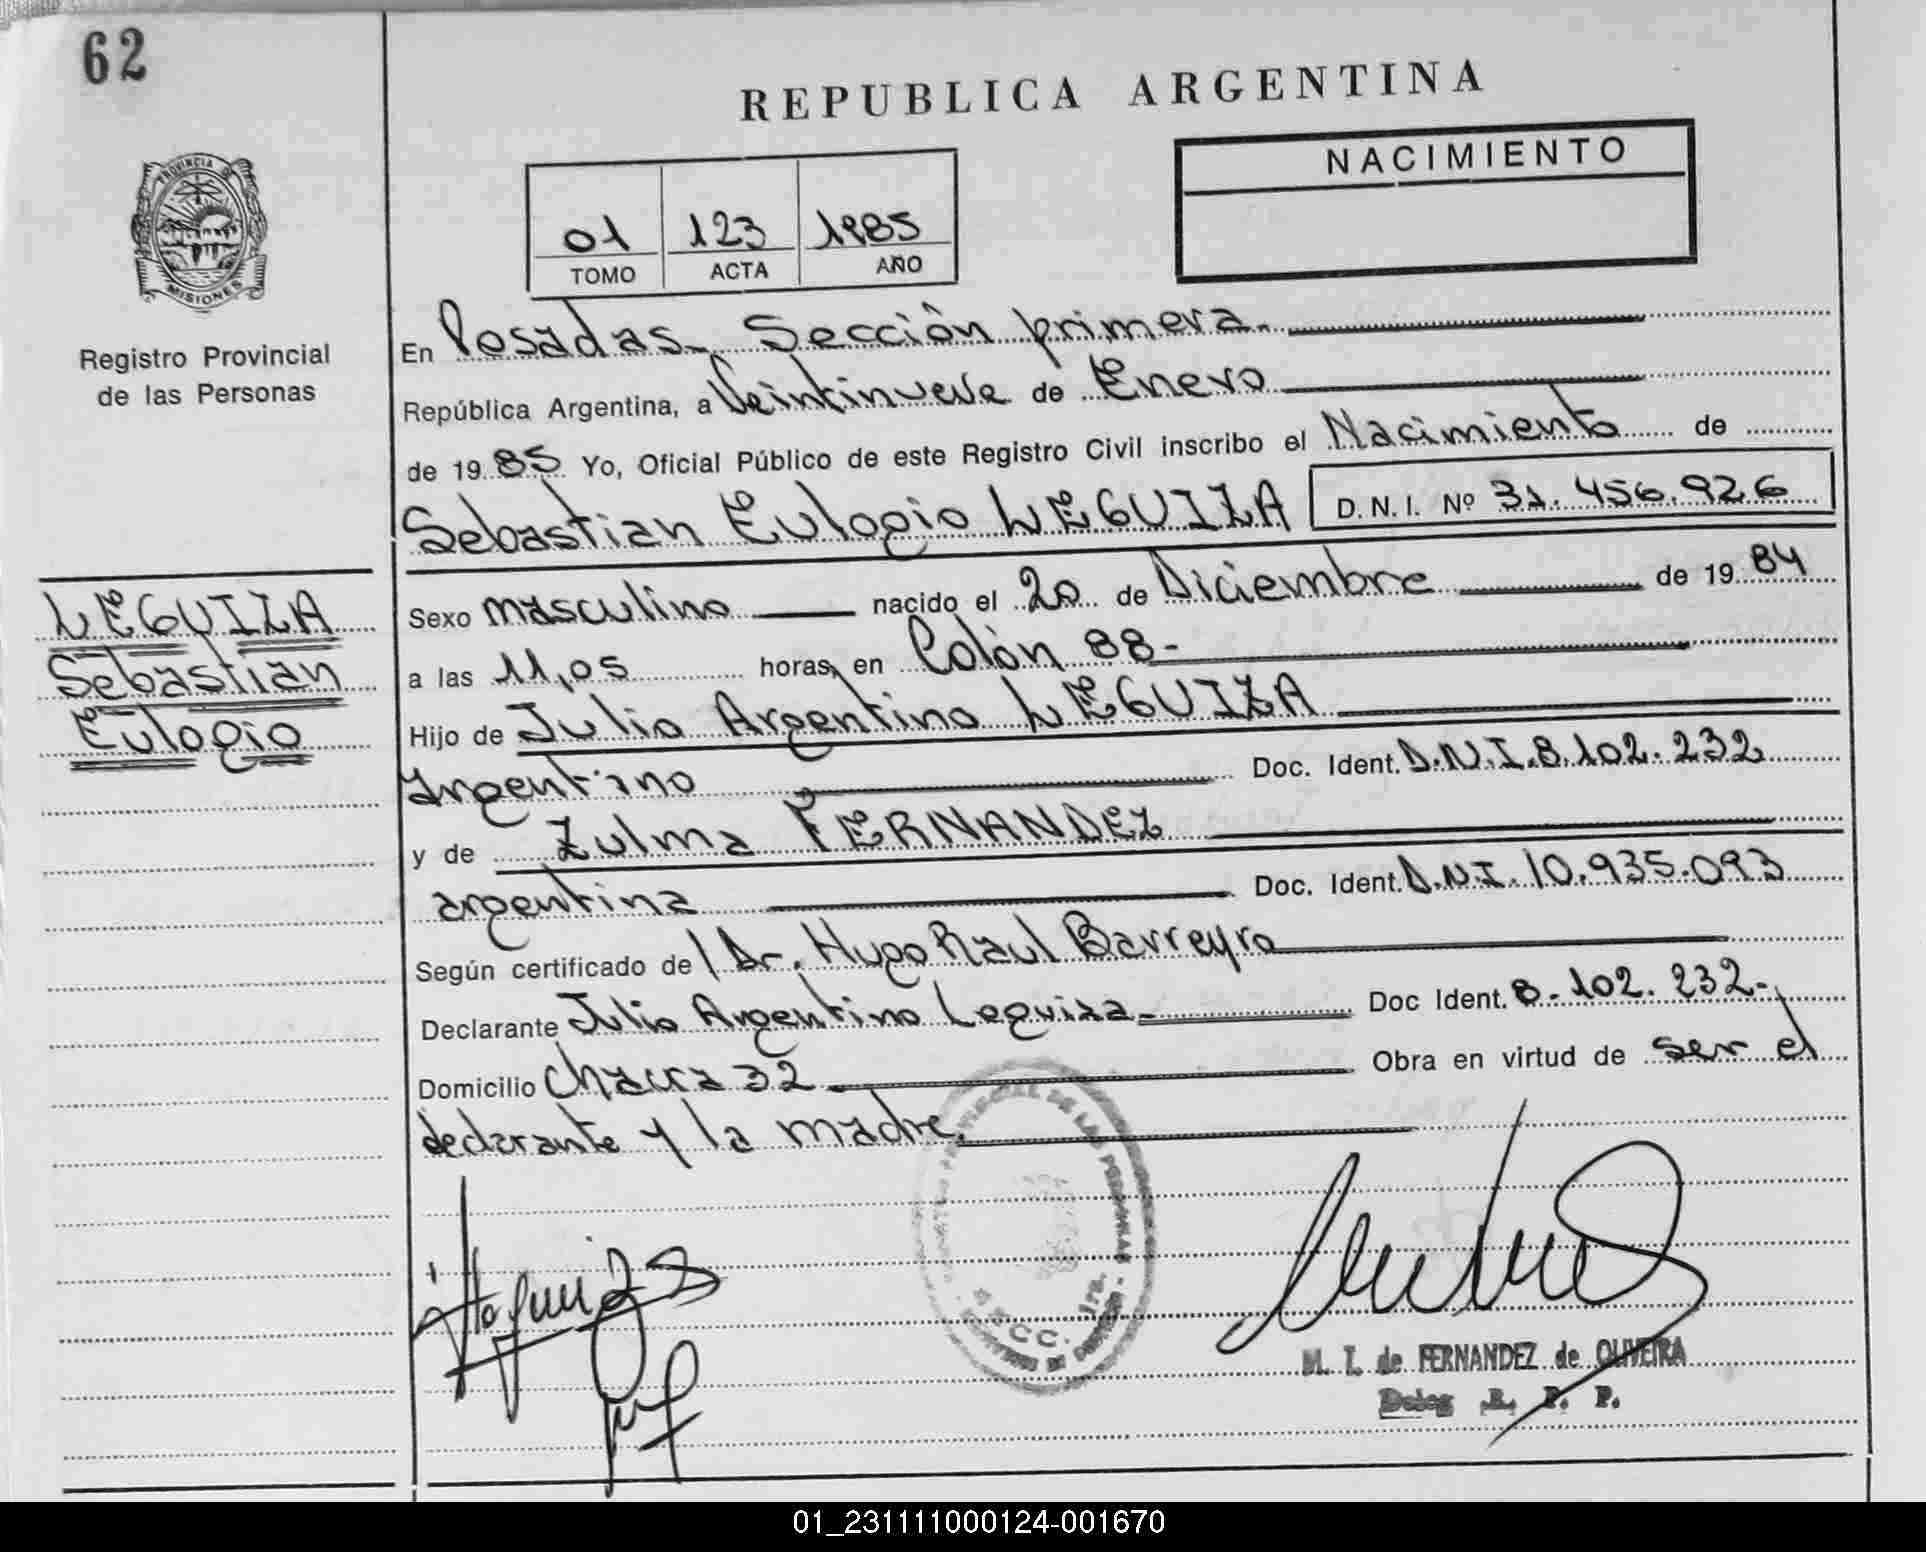 62
REPUBLICA ARGENTINA
NACIMIENTO
01 123 1985
TOMO ACTA AÑO
PROVINCIA DE
MISIONES
Registro Provincial
de las Personas
En Posadas - Sección primera.
República Argentina, a Veintinueve de Enero
de 19 85 Yo, Oficial Público de este Registro Civil inscribo el Nacimiento de
Sebastian Eulogio LEGUIZA D. N. I. Nº 31.456.926
LEGUIZA
Sebastian
Eulogio
Sexo masculino nacido el 20 de Diciembre de 19 84
a las 11,05 horas, en Colón 88-
Hijo de Julio Argentino LEGUIZA
Argentino Doc. Ident. D.N.I.8.102.232
y de Zulma FERNANDEZ
argentina Doc. Ident. D.N.I. 10.935.093
Según certificado de l Dr. Hugo Raul Barreyro
Declarante Julio Argentino Leguiza- Doc Ident. 8.102.232-
Domicilio Chacra 32 Obra en virtud de ser el
declarante y la madre.
M. I. de FERNANDEZ de OLIVEIRA
Deleg R. P. P.
01_231111000124-001670